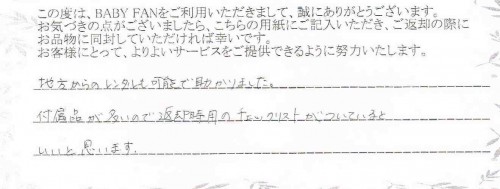 この度は、BABY FANをご利用いただきまして、誠にありがとうございます。
お気づきの点がございましたら、こちらの用紙にご記入いただき、ご返却の際に
お品物に同封していただければ幸いです。
お客様にとって、よりよいサービスをご提供できるように努力いたします。
地方からのレンタルも可能で助かりました。
付属品が多いので返却時用のチェックリストがついていると
いいと思います。